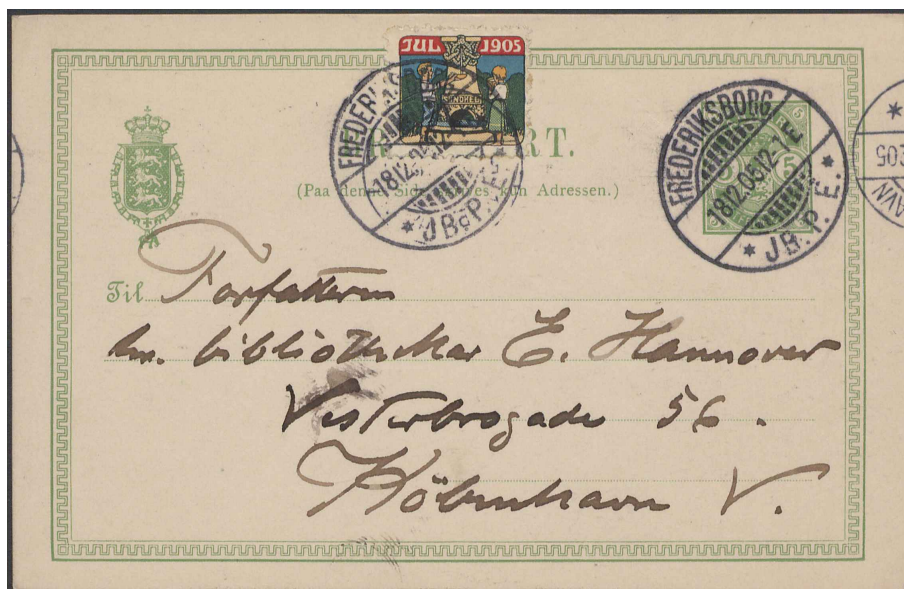 JUL 1905
FREDERIKSBORG
18.12.05.12-1E
* J.B.P.E. *
FREDERIKSBORG
18.12.05.12-1E
* J.B.P.E. *
5
(Paa denne Side skrives kun Adressen.)
Til Forfatteren
hr. bibliothekar E. Hannover
Vesterbrogade 56.
Köbenhavn V.